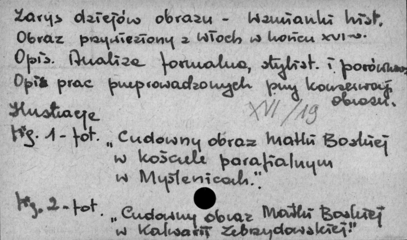 Zarys dziejów obrazu - Wzmianki hist.
Obraz przywieziony z Włoch w końcu XVI w.
Opis. Analiza formalna, stylist. i porównaw.
Opis prac przeprowadzonych przy konserwacji
obrazu.
XVI/19
Ilustracje
fig. 1 - fot. „Cudowny obraz Matki Boskiej
w kościele parafialnym
w Myślenicach."
fig. 2 - fot. „Cudowny obraz Matki Boskiej
w Kalwarii Zebrzydowskiej."